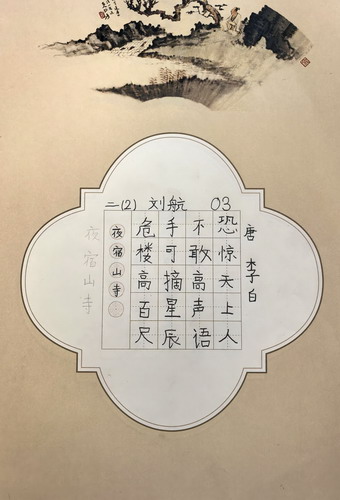 二(2) 刘航 03
夜宿山寺
夜宿山寺
危楼高百尺
手可摘星辰
不敢高声语
恐惊天上人
唐 李白